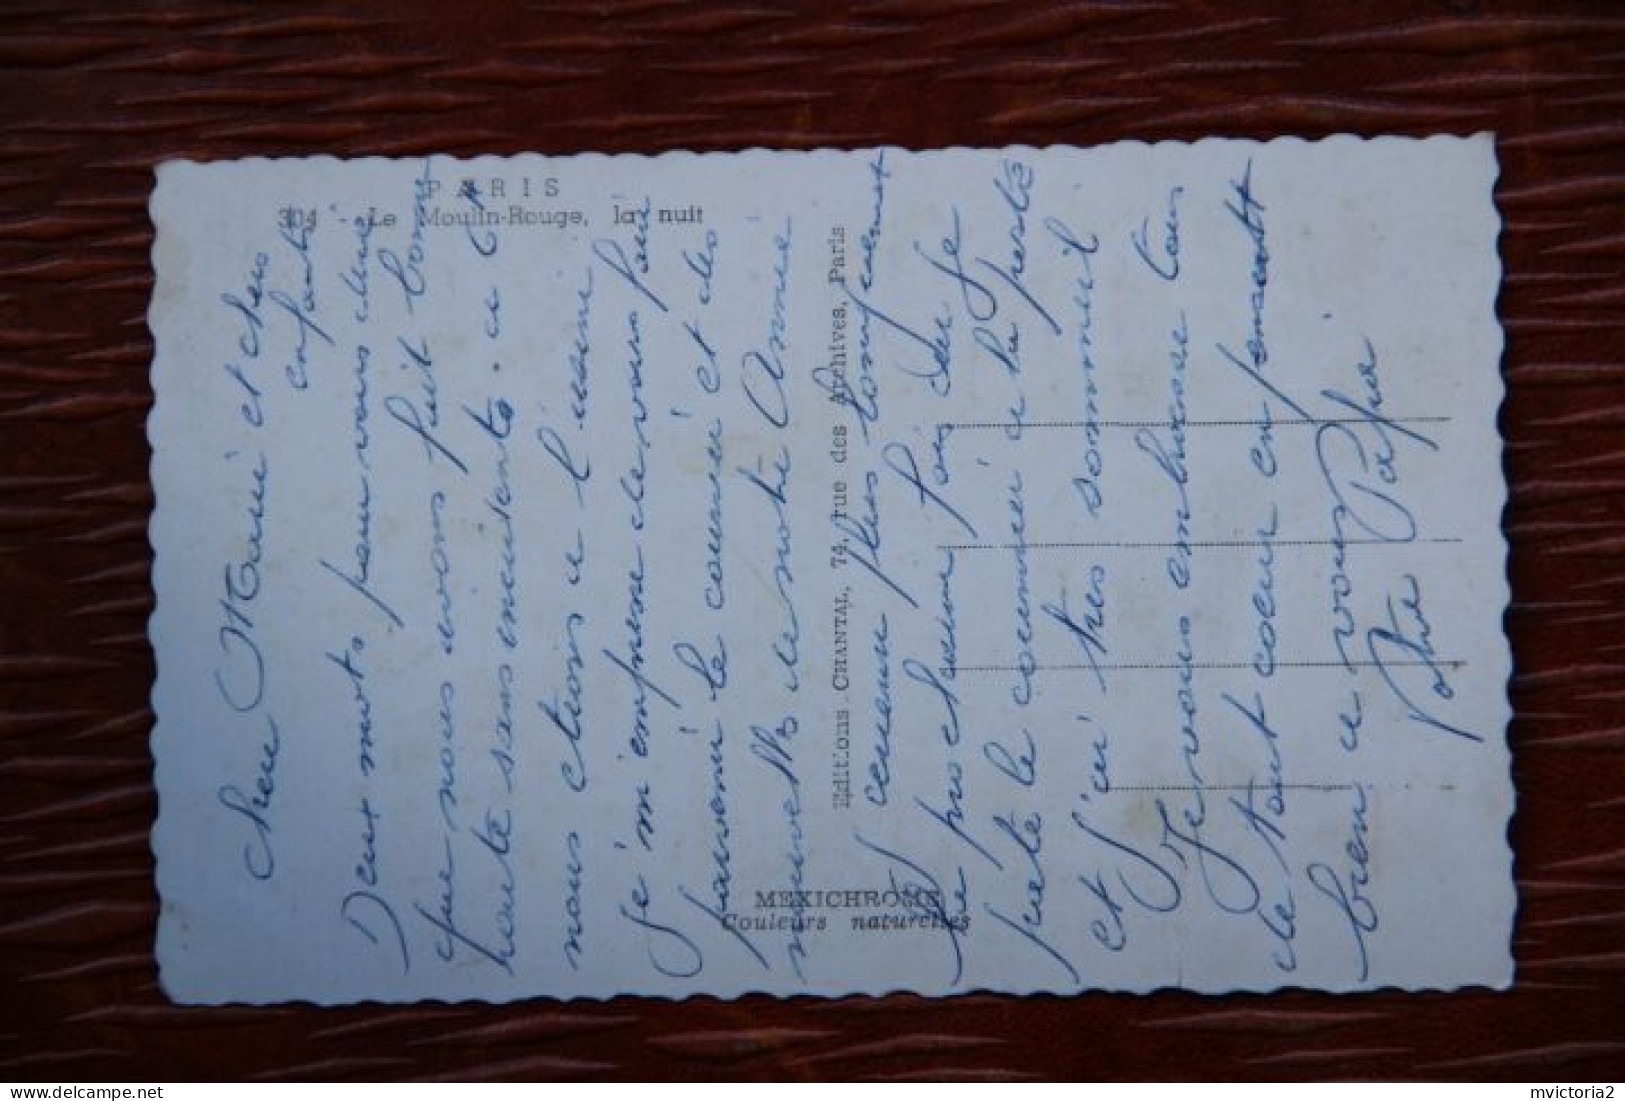 PARIS
304 - Le Moulin-Rouge, la nuit
Editions CHANTAL, 74, rue des Archives, Paris
MEXICHROME
Couleurs naturelles
cher Marie et chers
enfants
Deux mots pour vous dire
que nous avons fait bonne
route sans incidents. a 6 h
nous etions a
Je m'empresse de vous faire
parvenir le courrier et des
nouvelles de notre
plus longuement
la prochaine fois car Je
porte le courrier a la poste
et J'ai tres sommeil
Je vous embrasse tous
de tout coeur en pensant
bien a vous
Votre Papa
mvictoria2